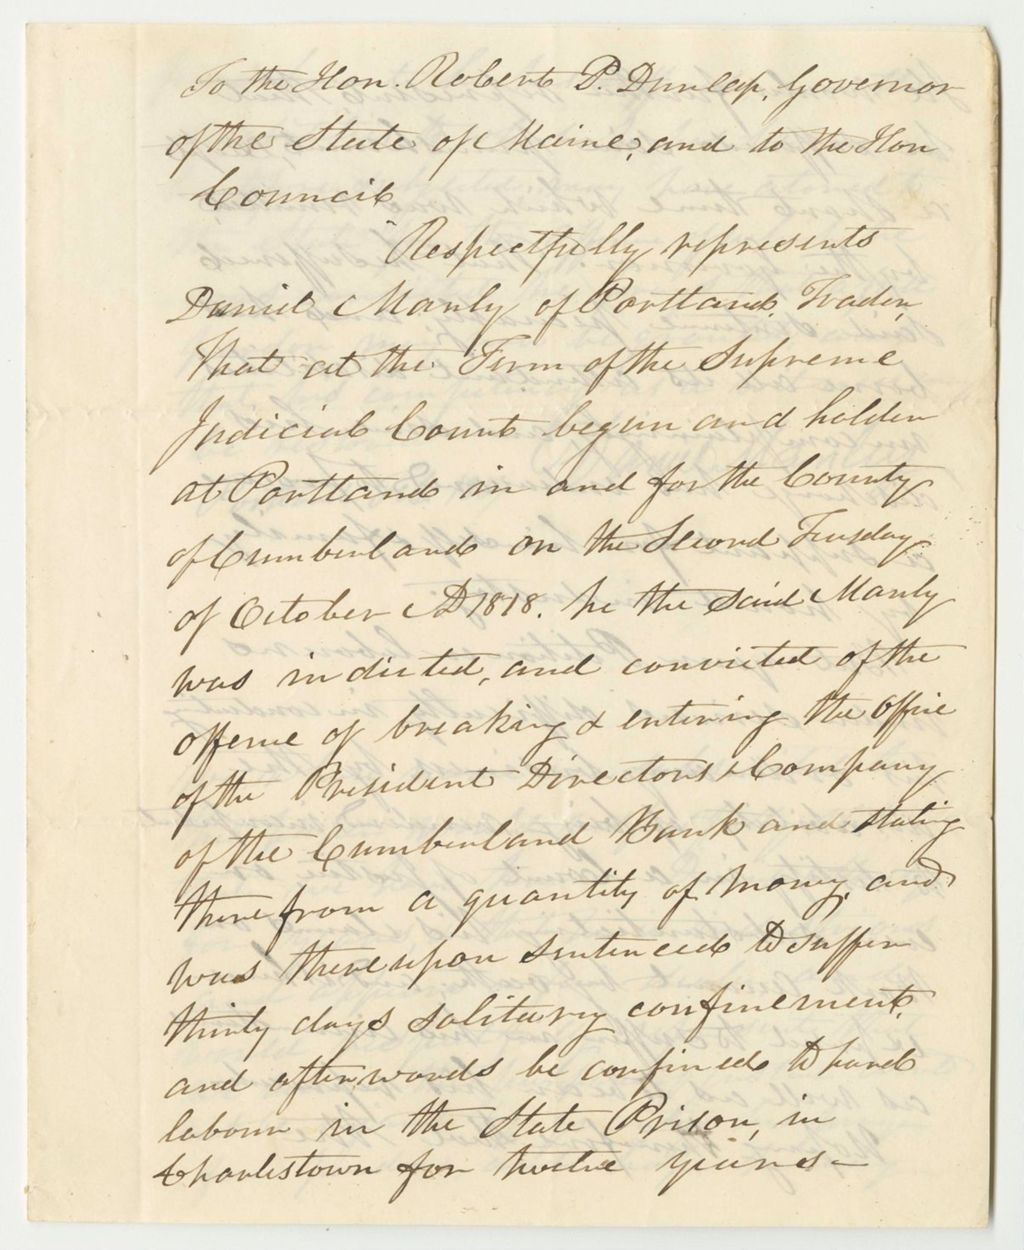 To the Hon. Robert P. Dunlap, Governor
of the State of Maine, and to the Hon
Council
Respectfully represents
Daniel Manly of Portland, Trader,
That at the Term of the Supreme
Judicial Court begun and holden
at Portland in and for the County
of Cumberland on the Second Tuesday
of October AD 1818. he the said Manly
was indicted, and convicted of the
offense of breaking & entering the office
of the President Directors & Company
of the Cumberland Bank and stealing
therefrom a quantity of money, and
was thereupon sentenced to suffer
thirty days solitary confinement,
and afterwards be confined to hard
labour in the State Prison, in
Charlestown for twelve years—